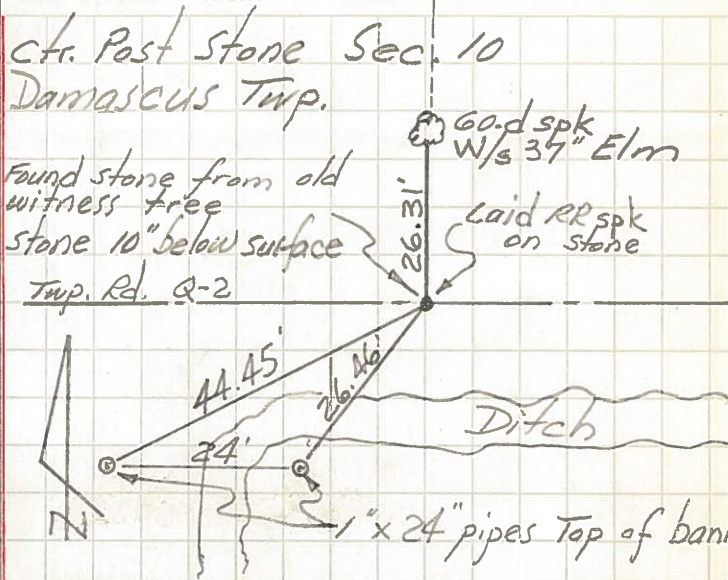 Ctr. Post Stone Sec. 10
Damascus Twp.
60.d spk
W/s 37" Elm
Found stone from old
witness tree
stone 10" below surface
26.31'
Laid RR spk
on stone
Twp. Rd. Q-2
44.45'
26.46'
24'
Ditch
N
1" x 24" pipes Top of bank